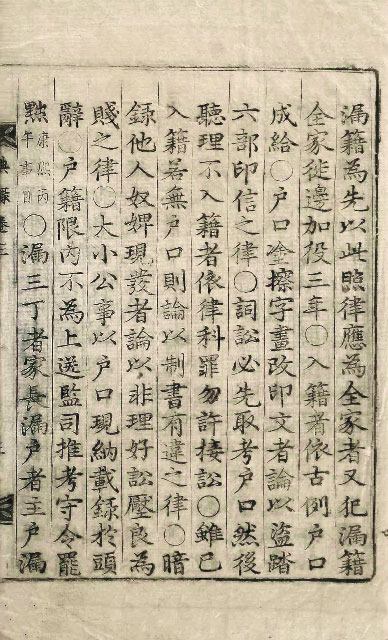 漏籍為先以此照律應為全家者又犯漏籍
全家徙邊加役三年〇入籍者依古例戶口
成給〇戶口塗擦字畫改印文者論以盜踏
六部印信之律〇詞訟必先取考戶口然後
聽理不入籍者依律科罪勿許接訟〇雖已
入籍若無戶口則論以制書有違之律〇暗
錄他人奴婢現發者論以非理好訟壓良為
賤之律〇大小公事以戶口現納載錄於頭
辭〇戶籍限內不為上送監司推考守令罷
黜康熙丙午事目〇漏三丁者家長漏戶者主戶漏